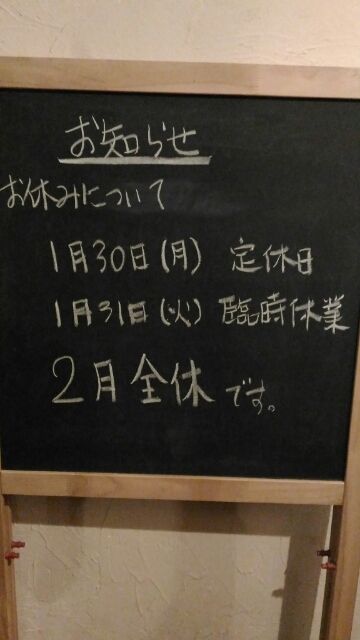 お知らせ
お休みについて
1月30日(月) 定休日
1月31日(火) 臨時休業
2月全休です。